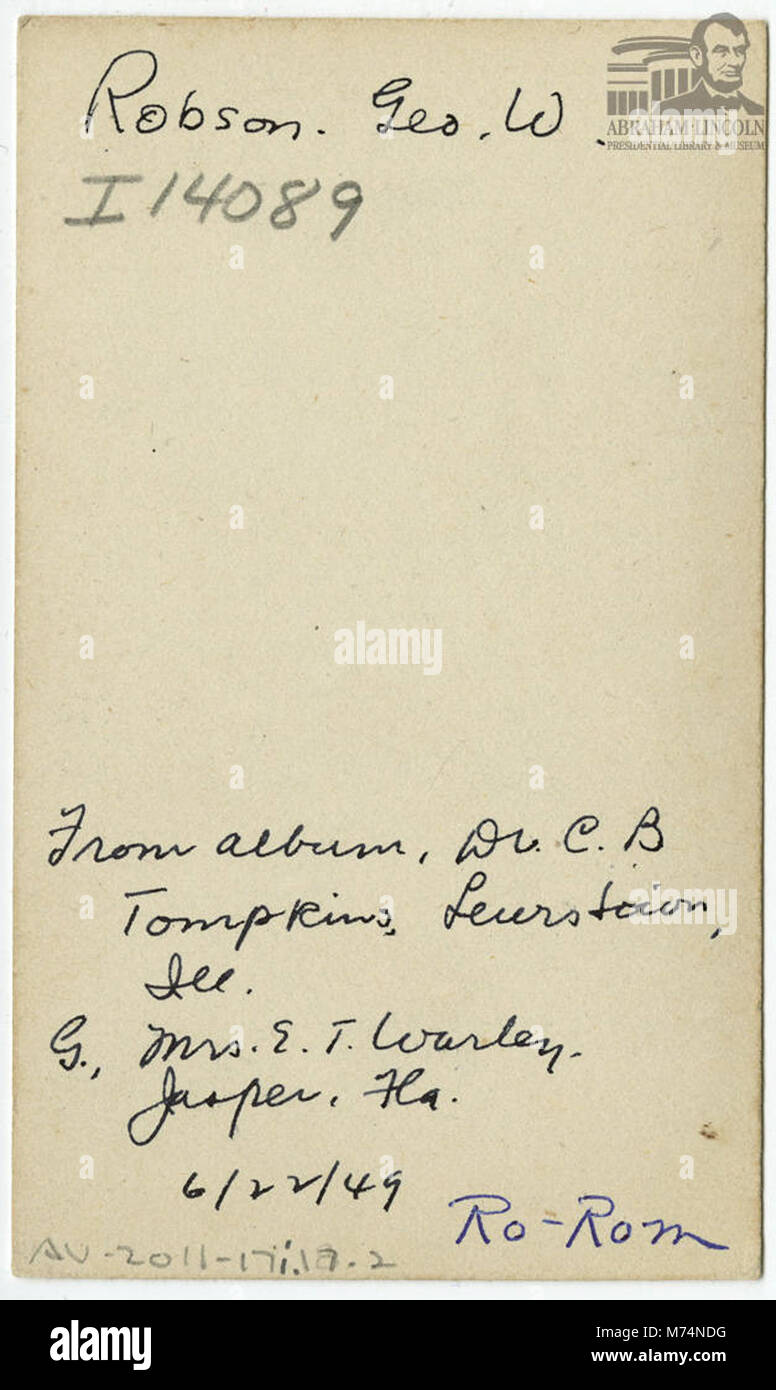 Robson. Geo. W.
ABRAHAM LINCOLN
PRESIDENTIAL LIBRARY & MUSEUM
I 14089
From album, Dr. C. B
Tompkins, Lewistown,
Ill.
G., Mrs. E. T. Warley.
Jasper, Fla.
6/22/49
Ro-Rom
AV-2011-17i.17.2
alamy
Image ID: M74NDG
www.alamy.com